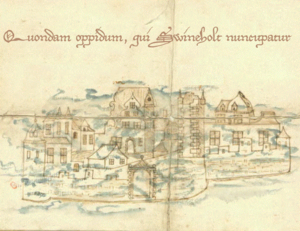 Quondam oppidum, qui Swineholt nuncupatur